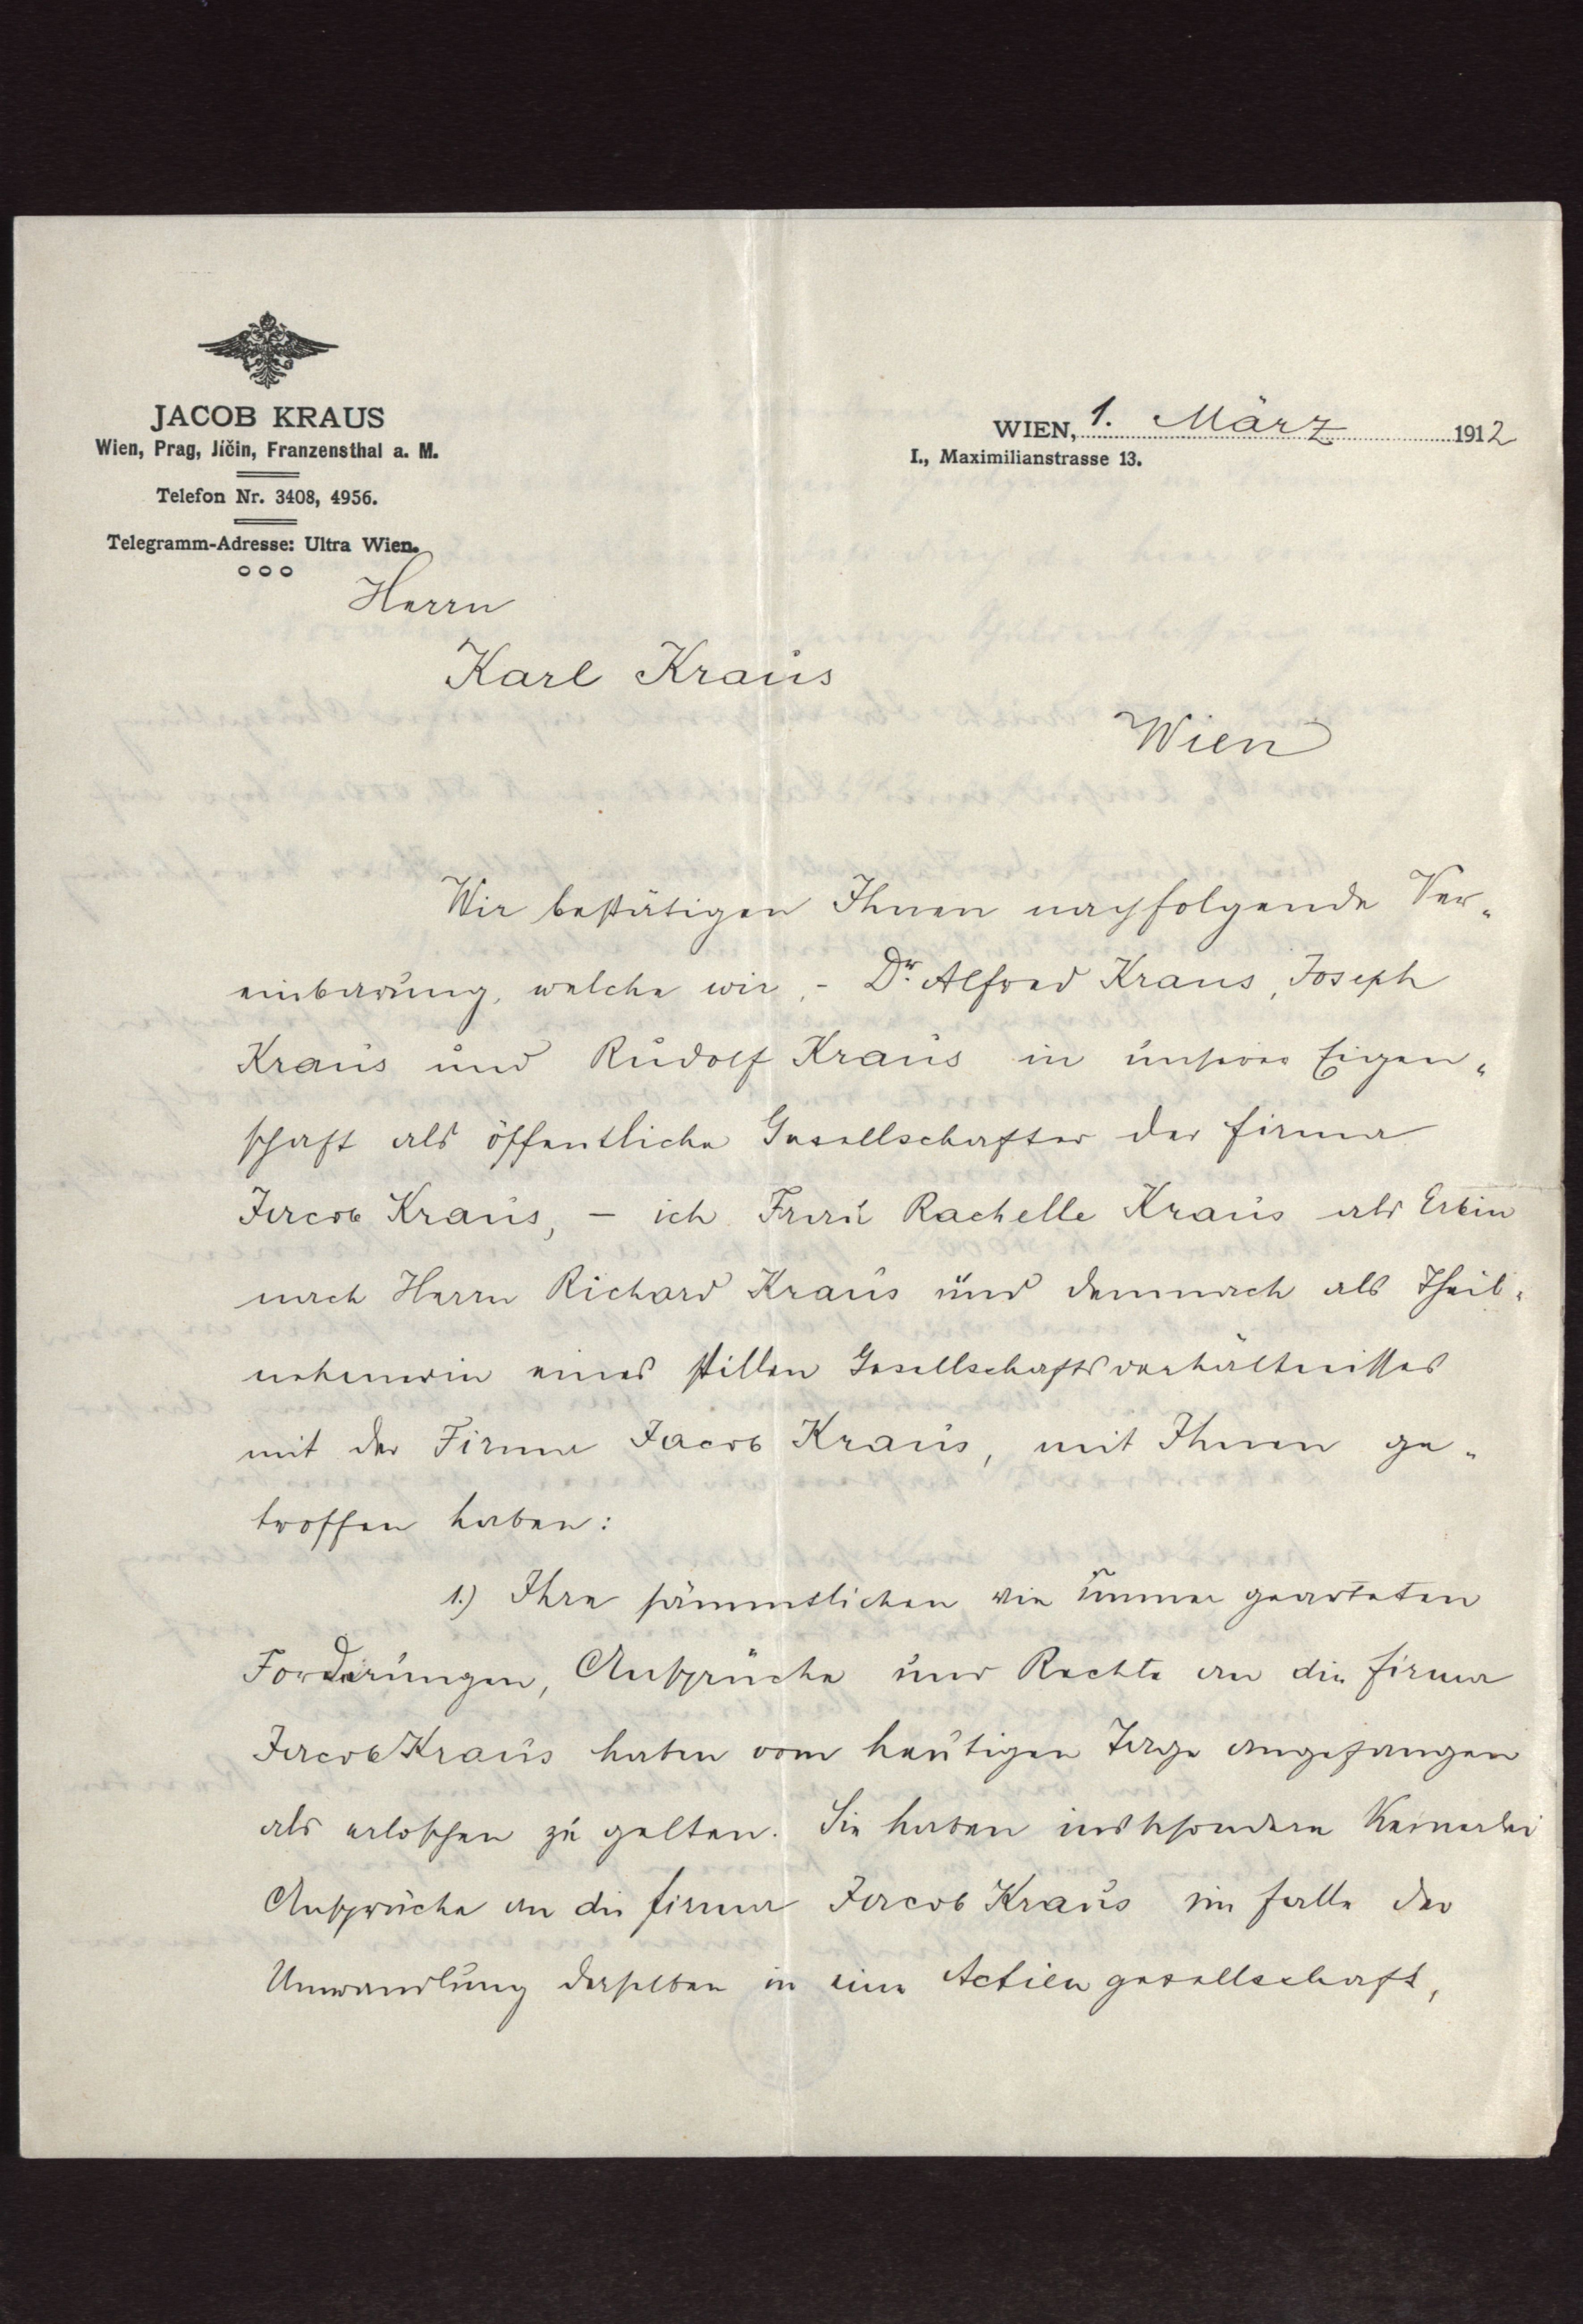 JACOB KRAUS
Wien, Prag, Jičin, Franzensthal a. M.
Telefon Nr. 3408, 4956.
Telegramm-Adresse: Ultra Wien.
WIEN, 1. März 1912
I., Maximilianstrasse 13.
Herrn
Karl Kraus
Wien
Wir bestätigen Ihnen nachfolgende Ver-
einbarung, welche wir, - Dr. Alfred Kraus, Joseph
Kraus und Rudolf Kraus in unserer Eigen-
schaft als öffentliche Gesellschafter der Firma
Jacob Kraus, - ich Frau Rachelle Kraus als Erbin
nach Herrn Richard Kraus und demnach als Theil-
nehmerin eines stillen Gesellschaftsverhältnisses
mit der Firma Jacob Kraus, mit Ihnen ge-
troffen haben:
1.) Ihre sämmtlichen wie immer gearteten
Forderungen, Ansprüche und Rechte an die Firma
Jacob Kraus haben vom heutigen Tage angefangen
als erloschen zu gelten. Sie haben insbesondere keinerlei
Ansprüche an die Firma Jacob Kraus im Falle der
Umwandlung derselben in eine Actiengesellschaft,